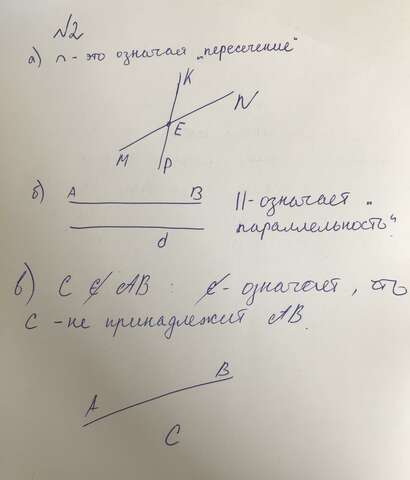 №2
а) ∩ - это означая „пересечение"
K
N
E
M
P
б) A B
d
|| - означает „
параллельность".
в) C ∉ AB : ∉ - означает, что
C - не принадлежит AB.
A
B
C